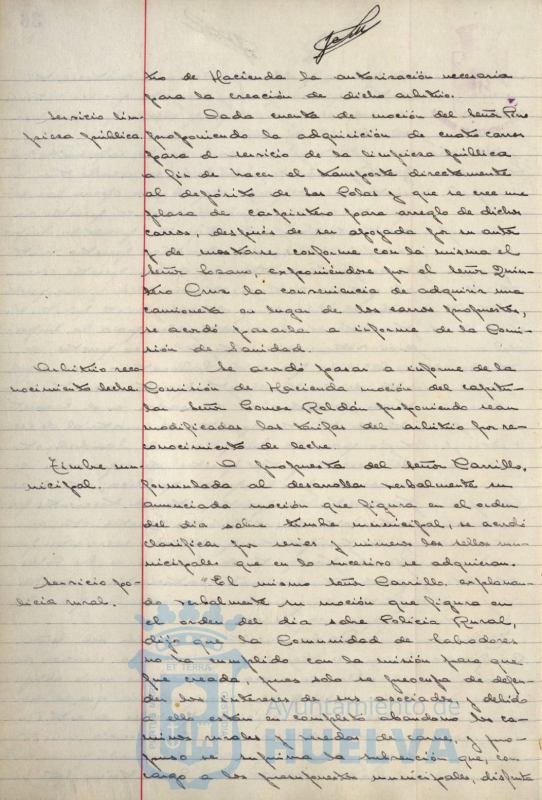 tro de Hacienda la autorización necesaria
para la creación de dicho arbitrio.
Servicio lim-
pieza pública.
Dada cuenta de moción del señor Pino
proponiendo la adquisición de cuatro carros
para el servicio de la limpieza pública
a fin de hacer el transporte directamente
al depósito de las Colas y que se cree una
plaza de carpintero para arreglo de dichos
carros, después de ser apoyada por su autor
y de mostarse conforme con la misma el
señor Lozano, exponiéndose por el señor Quin-
tero Cruz la conveniencia de adquirir una
camioneta en lugar de los carros propuestos,
se acordó pasarla a informe de la Comi-
sión de Sanidad.
Arbitrio reco-
nocimiento leche.
Se acordó pasar a informe de la
Comisión de Hacienda moción del capitu-
lar señor Gomez Roldán proponiendo sean
modificadas las tarifas del arbitrio por re-
conocimiento de leche.
Timbre mu-
nicipal.
A propuesta del señor Carrillo,
formulada al desarrollar verbalmente su
anunciada moción que figura en el orden
del dia sobre timbre municipal, se acordó
clasificar por series y número los sellos mu-
nicipales que en lo sucesivo se adquieran.
Servicio po-
licia rural.
"El mismo señor Carrillo, explanan-
do verbalmente su moción que figura en
el orden del dia sobre Policia Rural,
dijo que la Comunidad de Labradores
no ha cumplido con la misión para que
fue creada, pues solo se preocupa de defen-
der los intereses de sus asociados y debido
a ello están en completo abandono los ca-
minos rurales y veredas de carne, y pro-
puso se suprima la subvención que, con
cargo a los presupuestos municipales, disfruta
ET TERRA
Ayuntamiento de
HUELVA